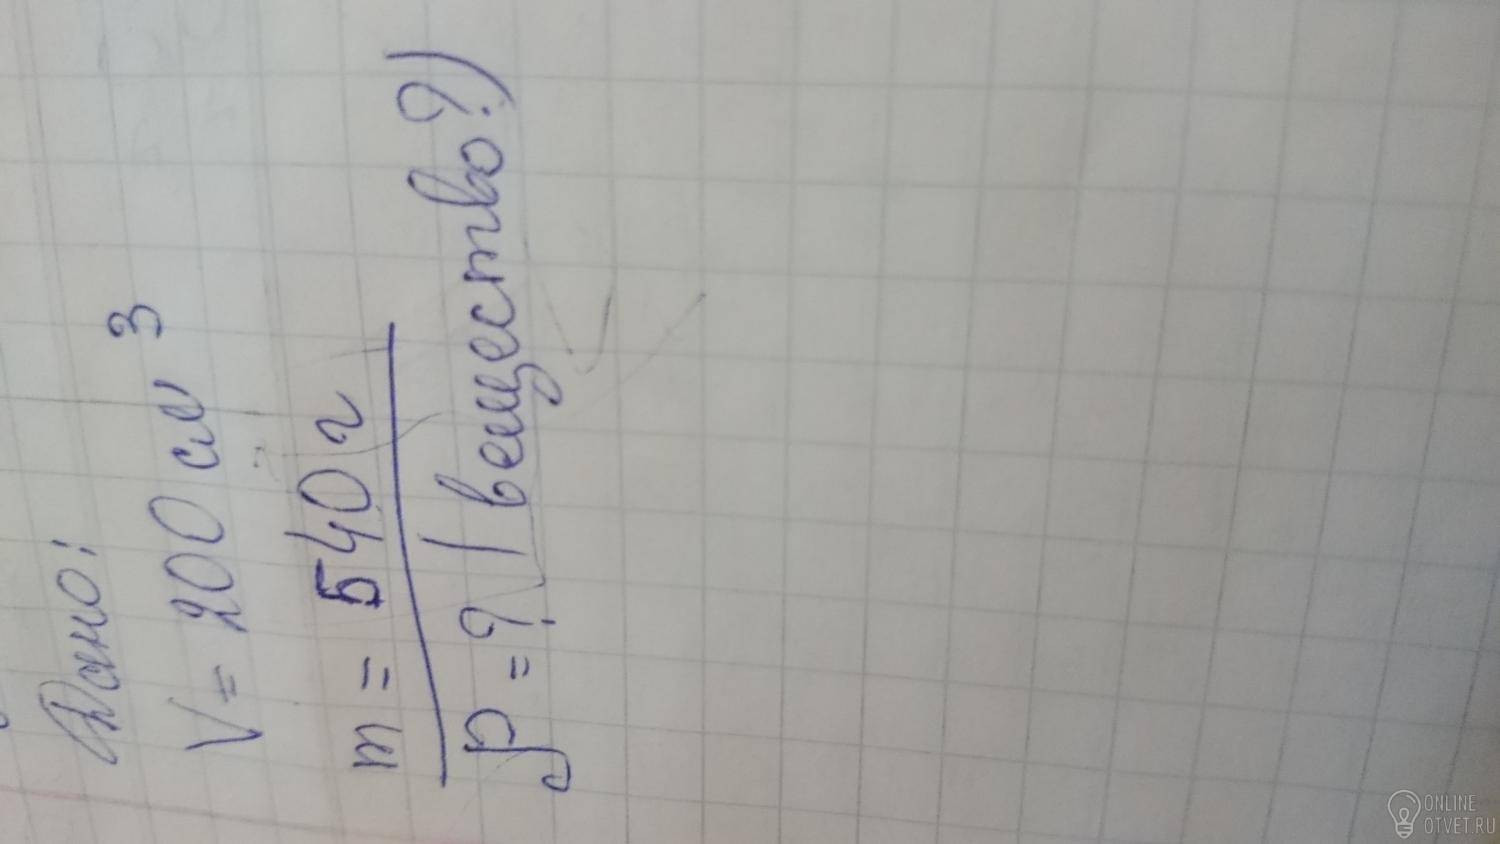 Дано:
V = 200 см³
m = 540 г
ρ = ? (вещество?)
ONLINE
OTVET.RU